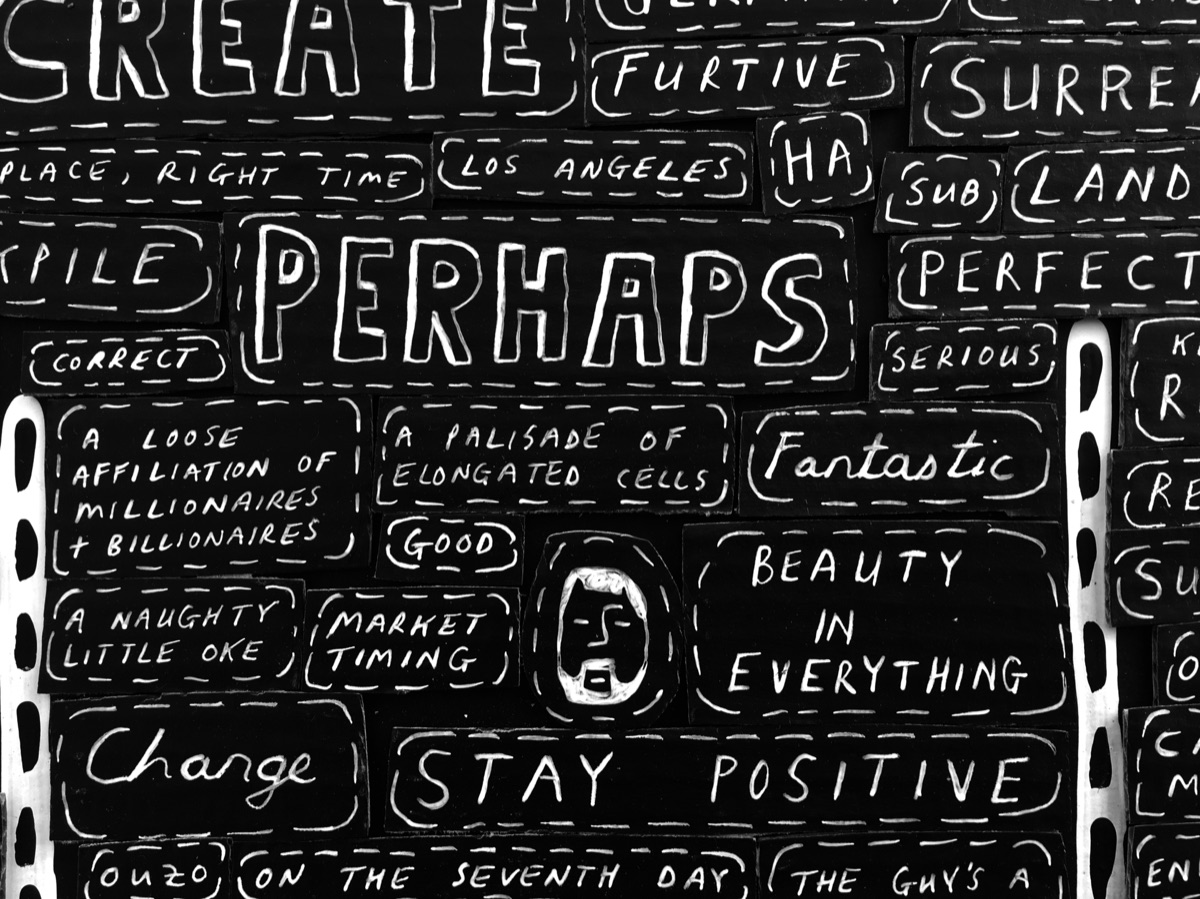 CREATE
FURTIVE
SURREA
PLACE, RIGHT TIME
LOS ANGELES
HA
SUB
LAND
KPILE
PERHAPS
PERFECT
CORRECT
SERIOUS
K
R
A LOOSE
AFFILIATION OF
MILLIONAIRES
+ BILLIONAIRES
A PALISADE OF
ELONGATED CELLS
Fantastic
RE
GOOD
BEAUTY
IN
EVERYTHING
SU
A NAUGHTY
LITTLE OKE
MARKET
TIMING
O
Change
STAY POSITIVE
CA
M
OUZO
ON THE SEVENTH DAY
THE GUY'S A
EN